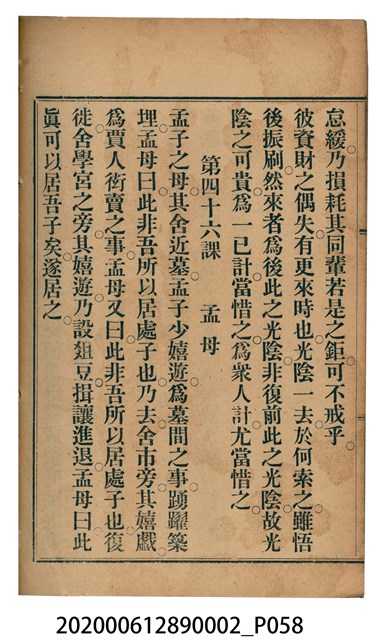 怠緩乃損耗其同輩若是之鉅可不戒乎
彼資財之偶失有更來時也光陰一去於何索之雖悟
後振刷然來者爲後此之光陰非復前此之光陰故光
陰之可貴爲一己計當惜之爲衆人計尤當惜之
第四十六課　孟母
孟子之母其舍近墓孟子少嬉遊爲墓間之事踴躍築
埋孟母曰此非吾所以居處子也乃去舍市旁其嬉戲
爲賈人衒賣之事孟母又曰此非吾所以居處子也復
徙舍學宮之旁其嬉遊乃設俎豆揖讓進退孟母曰此
眞可以居吾子矣遂居之
202000612890002_P058